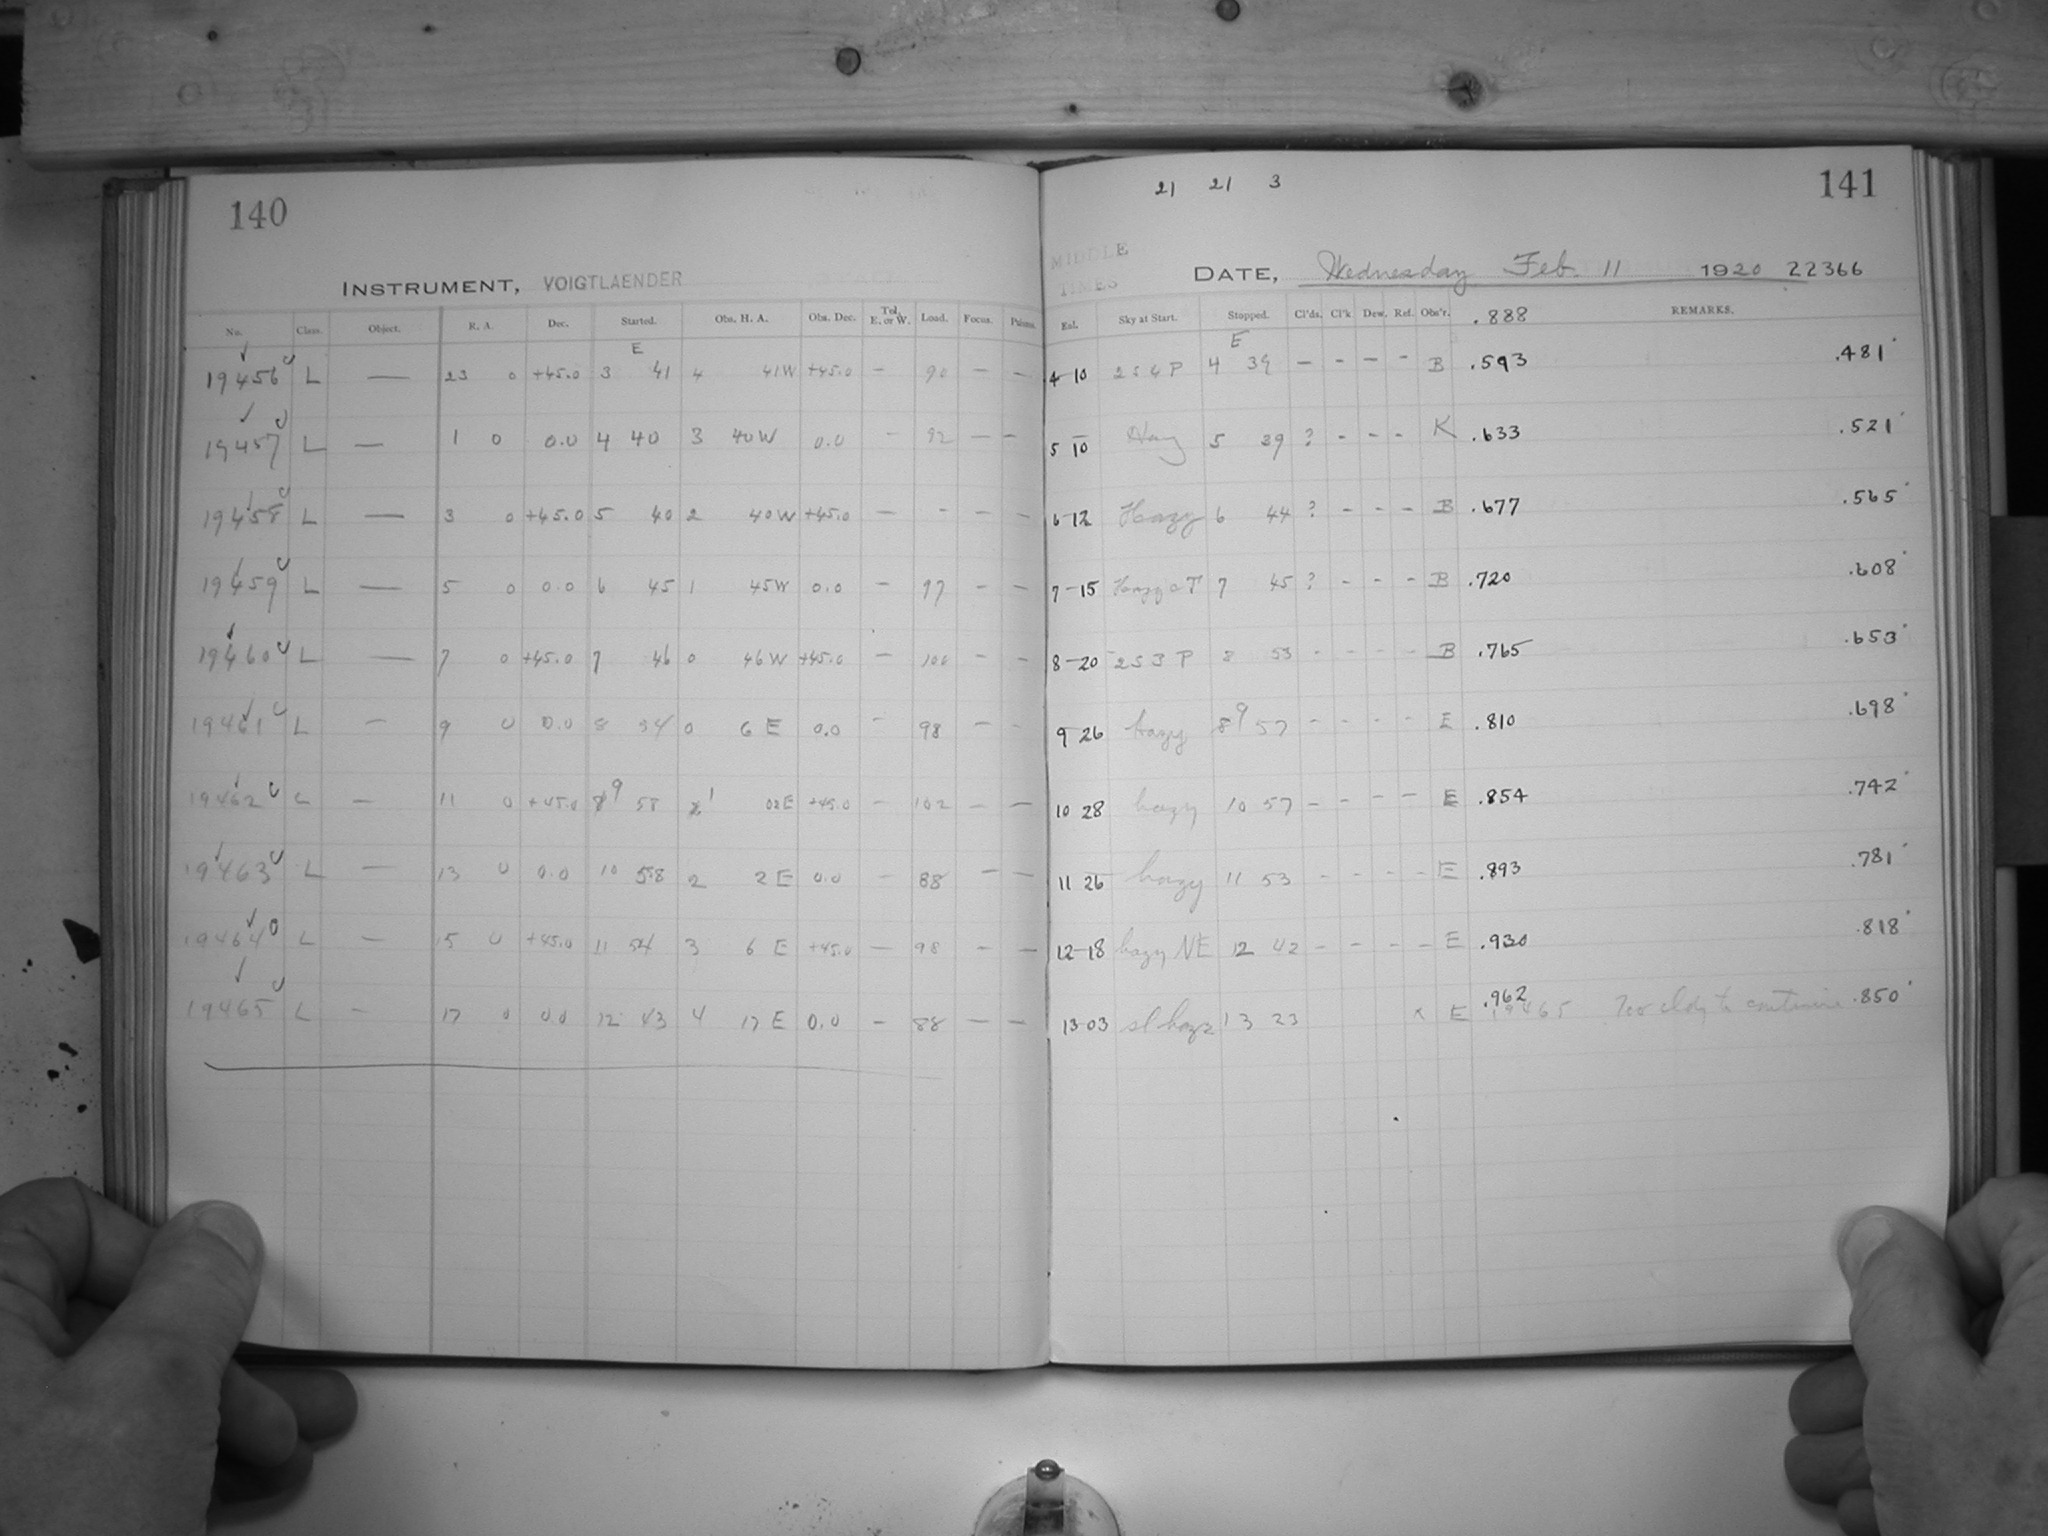 140
INSTRUMENT, VOIGTLAENDER
No. Class. Object. R. A. Dec. Started. Obs. H. A. Obs. Dec. Tel. E. or W. Load. Focus.
E
19456 L — 23 0 +45.0 3 41 4 41 W +45.0 — 90 — —
19457 L — 1 0 0.0 4 40 3 40 W 0.0 — 92 — —
19458 L — 3 0 +45.0 5 40 2 40 W +45.0 — - — —
19459 L — 5 0 0.0 6 45 1 45 W 0.0 — 97 — —
19460 L — 7 0 +45.0 7 46 0 46 W +45.0 — 100 — —
19461 L — 9 0 0.0 8 54 0 6 E 0.0 — 98 — —
19462 L — 11 0 +45.0 9 58 1 02 E +45.0 — 102 — —
19463 L — 13 0 0.0 10 58 2 2 E 0.0 — 88 — —
19464 L — 15 0 +45.0 11 54 3 6 E +45.0 — 98 — —
19465 L — 17 0 0.0 12 43 4 17 E 0.0 — 88 — —
21 21 3
141
MIDDLE
TIMES
DATE, Wednesday Feb. 11 1920 22366
Sky at Start. Stopped. Cl'ds. Cl'k Dew. Ref. Obs'r. .888 REMARKS.
E
4-10 2 S 4 P 4 39 — — — — B .593 .481
5 10 Hazy 5 39 ? - - - K .633 .521
6-12 Hazy 6 44 ? - - - B .677 .565
7-15 Hazy 7 45 ? - - - B .720 .608
8-20 2 S 3 P 8 53 - - - - B .765 .653
9 26 hazy 9 57 - - - - E .810 .698
10 28 hazy 10 57 - - - - E .854 .742
11 26 hazy 11 53 - - - - E .893 .781
12-18 hazy NE 12 42 - - - - E .930 .818
13 03 sl hazy 13 23 x E .962 .850
19465 Too cldy to continue